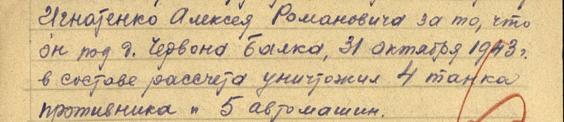 Игнатенко Алексея Романовича за то, что
он под д. Червона Балка, 31 октября 1943 г.
в составе рассчета уничтожил 4 танка
противника и 5 автомашин.